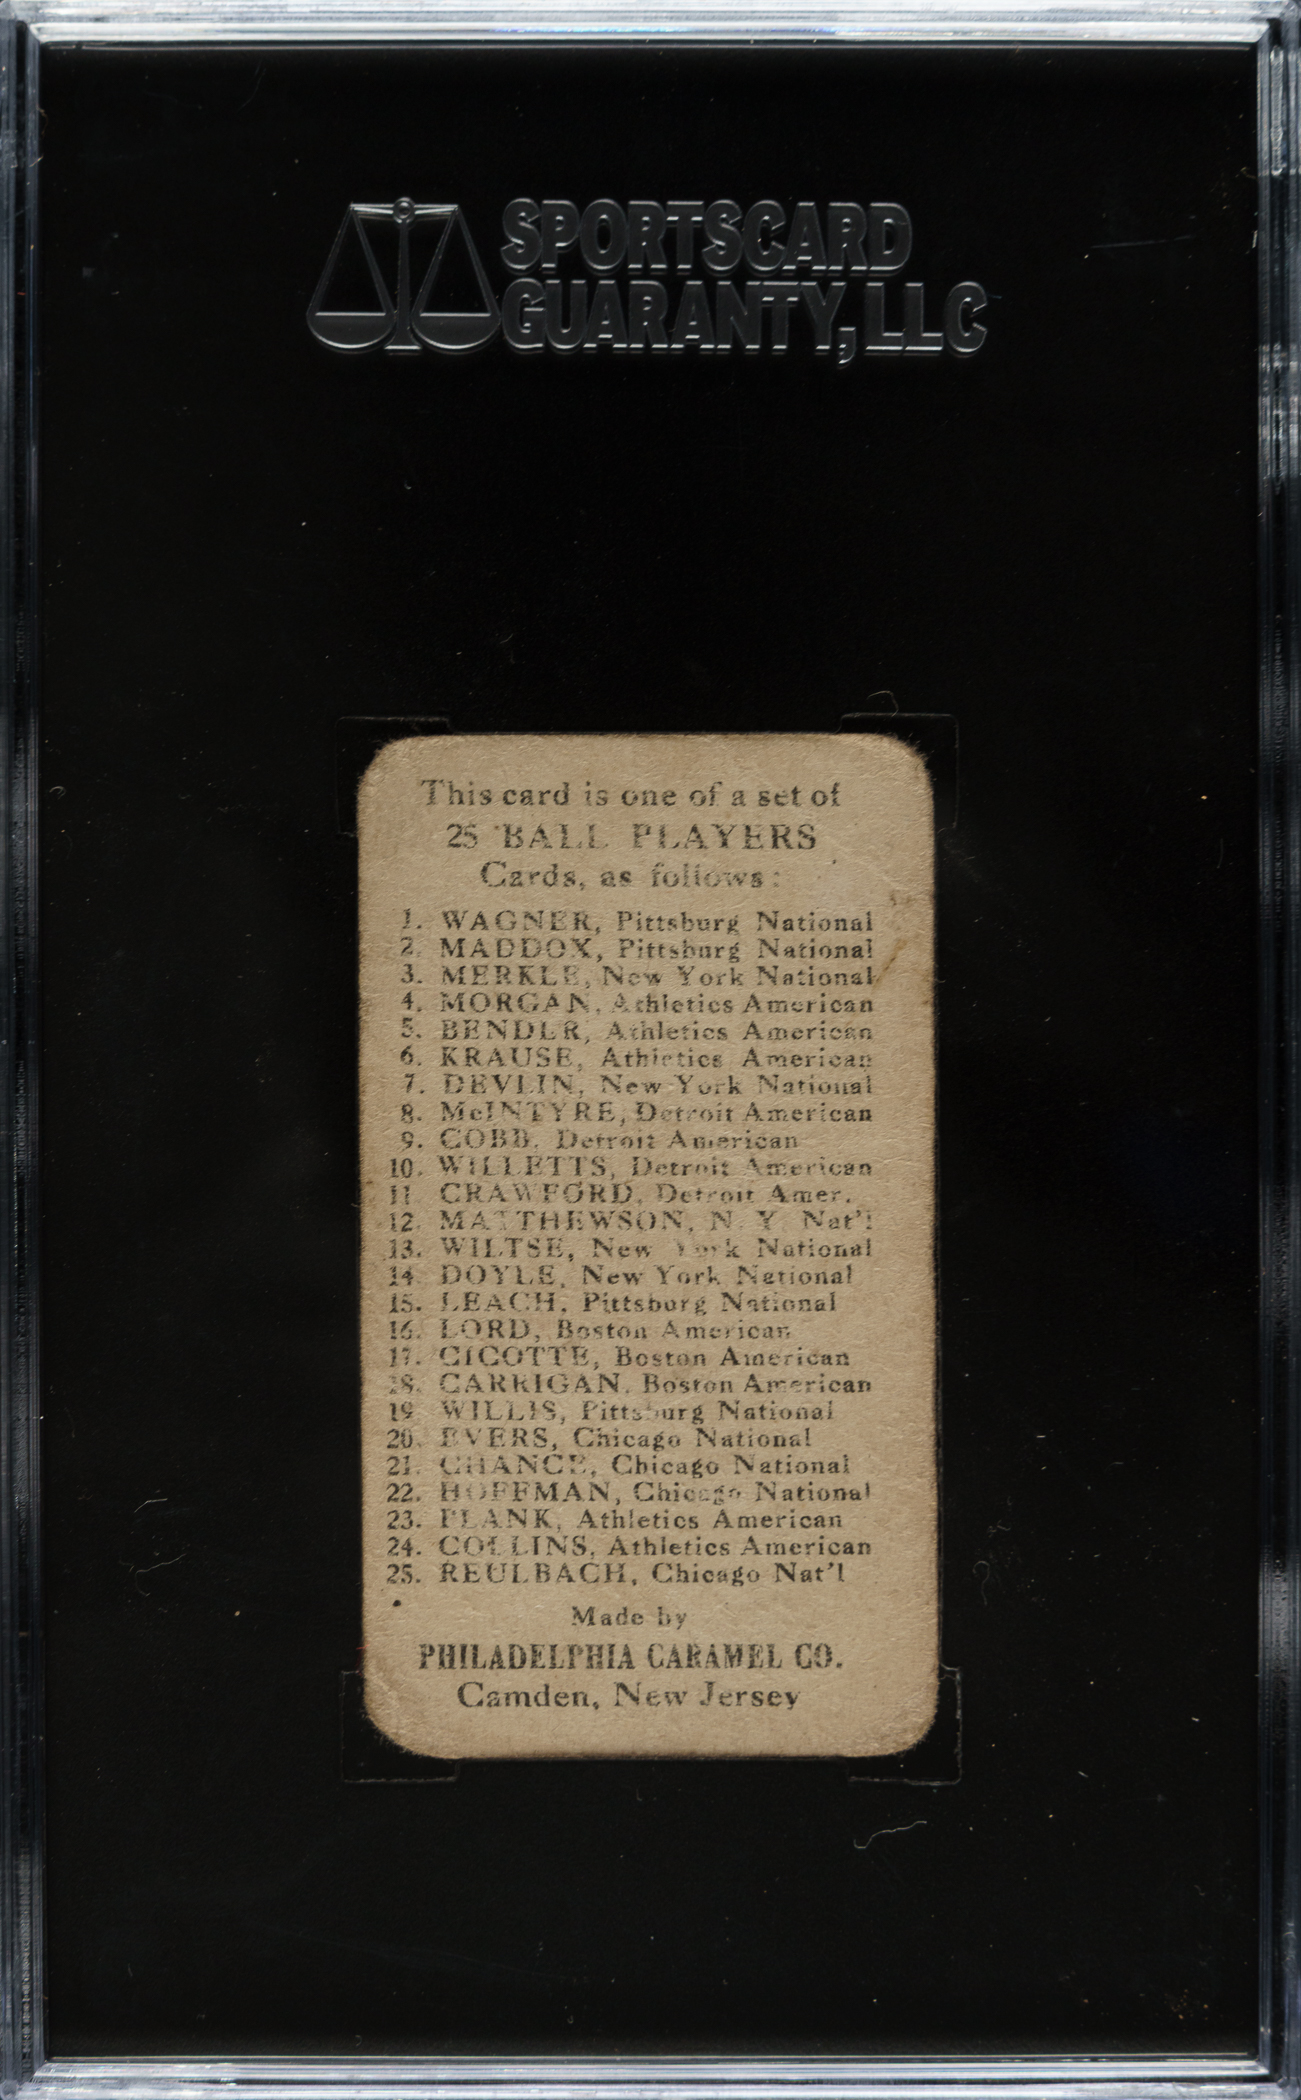 SPORTSCARD
GUARANTY, LLC
This card is one of a set of
25 BALL PLAYERS
Cards, as follows:
1. WAGNER, Pittsburg National
2. MADDOX, Pittsburg National
3. MERKLE, New York National
4. MORGAN, Athletics American
5. BENDER, Athletics American
6. KRAUSE, Athletics American
7. DEVLIN, New York National
8. McINTYRE, Detroit American
9. COBB, Detroit American
10. WILLETTS, Detroit American
11. CRAWFORD, Detroit Amer.
12. MATTHEWSON, N. Y. Nat'l
13. WILTSE, New York National
14. DOYLE, New York National
15. LEACH, Pittsburg National
16. LORD, Boston American
17. CICOTTE, Boston American
18. CARRIGAN, Boston American
19. WILLIS, Pittsburg National
20. EVERS, Chicago National
21. CHANCE, Chicago National
22. HOFFMAN, Chicago National
23. PLANK, Athletics American
24. COLLINS, Athletics American
25. REULBACH, Chicago Nat'l
Made by
PHILADELPHIA CARAMEL CO.
Camden, New Jersey